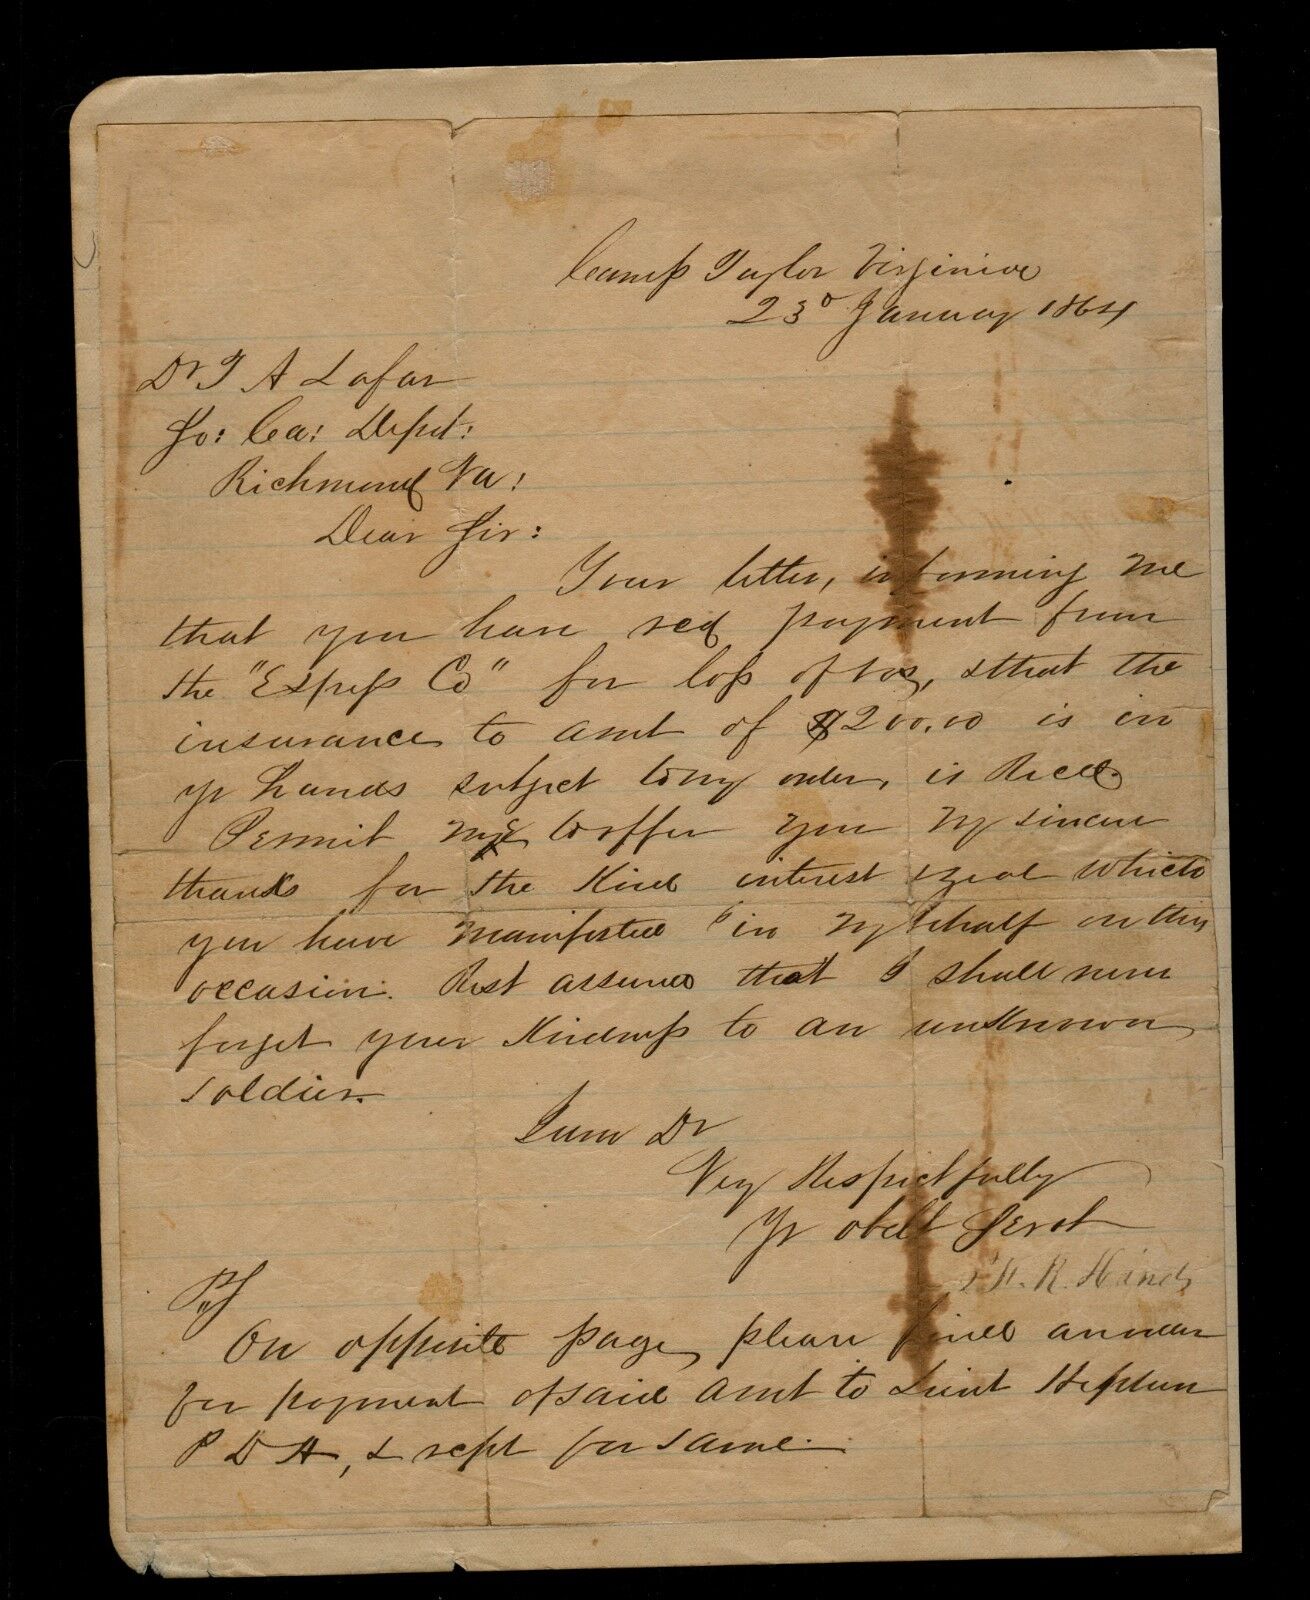 Camp Taylor Virginia
23d January 1864
Dr T A Lafar
So: Ca: Depot:
Richmond Va:
Dear Sir:
Your letter, informing me
that you have recd payment from
the "Express Co" for loss of box, & that the
insurance to amt of $200.00 is in
yr hands subject to my order, is Recd.
Permit me to offer you my sincere
thanks for the kind interest & zeal which
you have manifested in my behalf on this
occasion. Rest assured that I shall never
forget your kindness to an unknown
soldier.
I am Dr
Very Respectfully
Yr obdt Servt
H. R. Hands
PS
On opposite page, please find an order
for payment of said amt to Lieut
P D H, & rcpt for same.